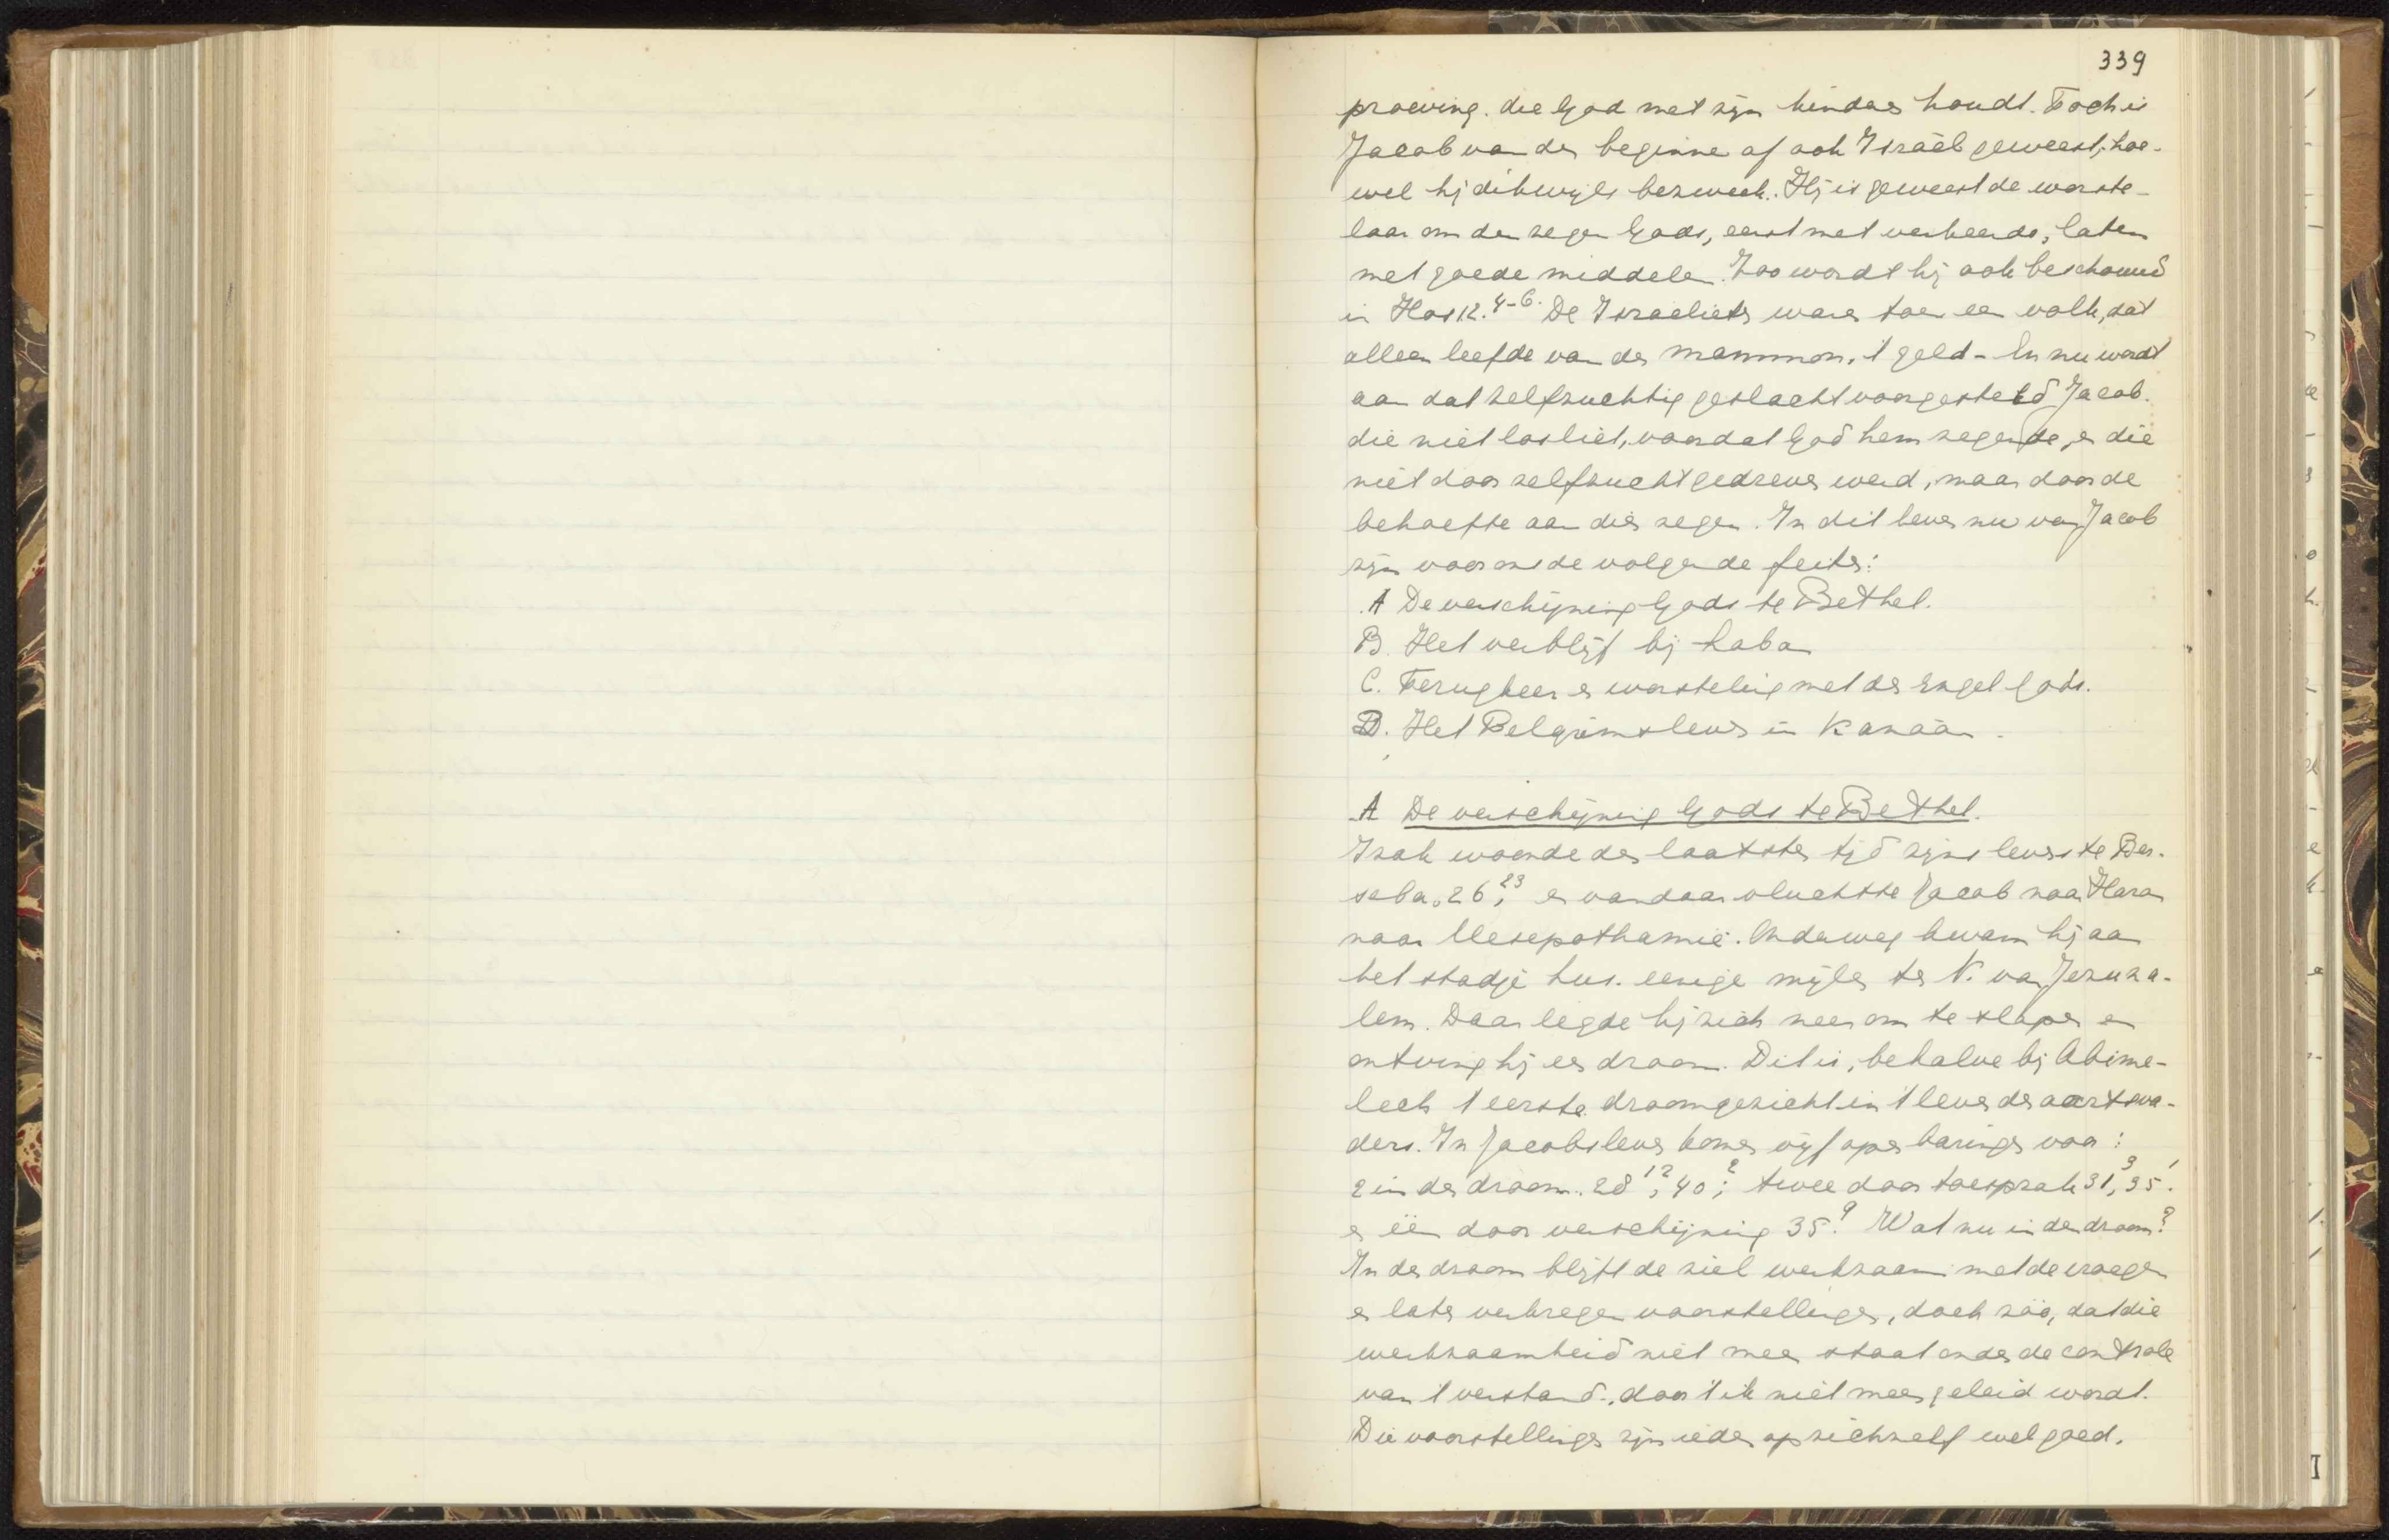 339
proeving. die God met zijn kinder houdt. Toch is
Jacob van den beginne af ook Israël geweest, hoe-
wel hij dikwijls bezweek. Hij is geweest de worste-
laar om den zegen Gods, eerst met verkeerde, later
met goede middelen. Zoo wordt hij ook beschouwd
in Hos 12. 4-6. De Israelieten waren toen een volk, dat
alleen leefde van den mammon, 't geld - En nu wordt
aan dat zelfzuchtig geslacht voorgesteld Jacob.
die niet losliet, voordat God hem zegende, en die
niet door zelfzucht gedreven werd, maar door de
behoefte aan dien zegen. In dit leven nu van Jacob
zijn voor ons de volgende feiten:
A De verschijning Gods te Bethel.
B. Het verblijf bij Laban
C. Terugkeer en worsteling met den Engel Gods.
D. Het Pelgrimsleven in Kanaän.
A De verschijning Gods te Bethel.
Izak woonde den laatsten tijd zijns levens te Ber-
seba, 26, 23 en vandaar vluchtte Jacob naar Haran
naar Mesepothamie. Onderweg kwam hij aan
het stadje Lus. eenige mijlen ten N. van Jeruza-
lem. Daar legde hij zich neer om te slapen en
ontving hij een droom. Dit is, behalve bij Abime-
lech 't eerste droomgezicht in 't leven der aartsva-
ders. In Jacobs leven komen vijf openbaringen voor:
2 in den droom. 28 12, 40 2; twee door toespraak 31, 3 35 1.
en één door verschijning 35. 9 Wat nu in den droom?
In den droom blijft de ziel werkzaam met de vroeger
en later verkregen voorstellingen, doch zóó, dat die
werkzaamheid niet meer staat onder de controle
van 't verstand., door 't ik niet meer geleid wordt.
Die voorstellingen zijn ieder op zichzelf wel goed.